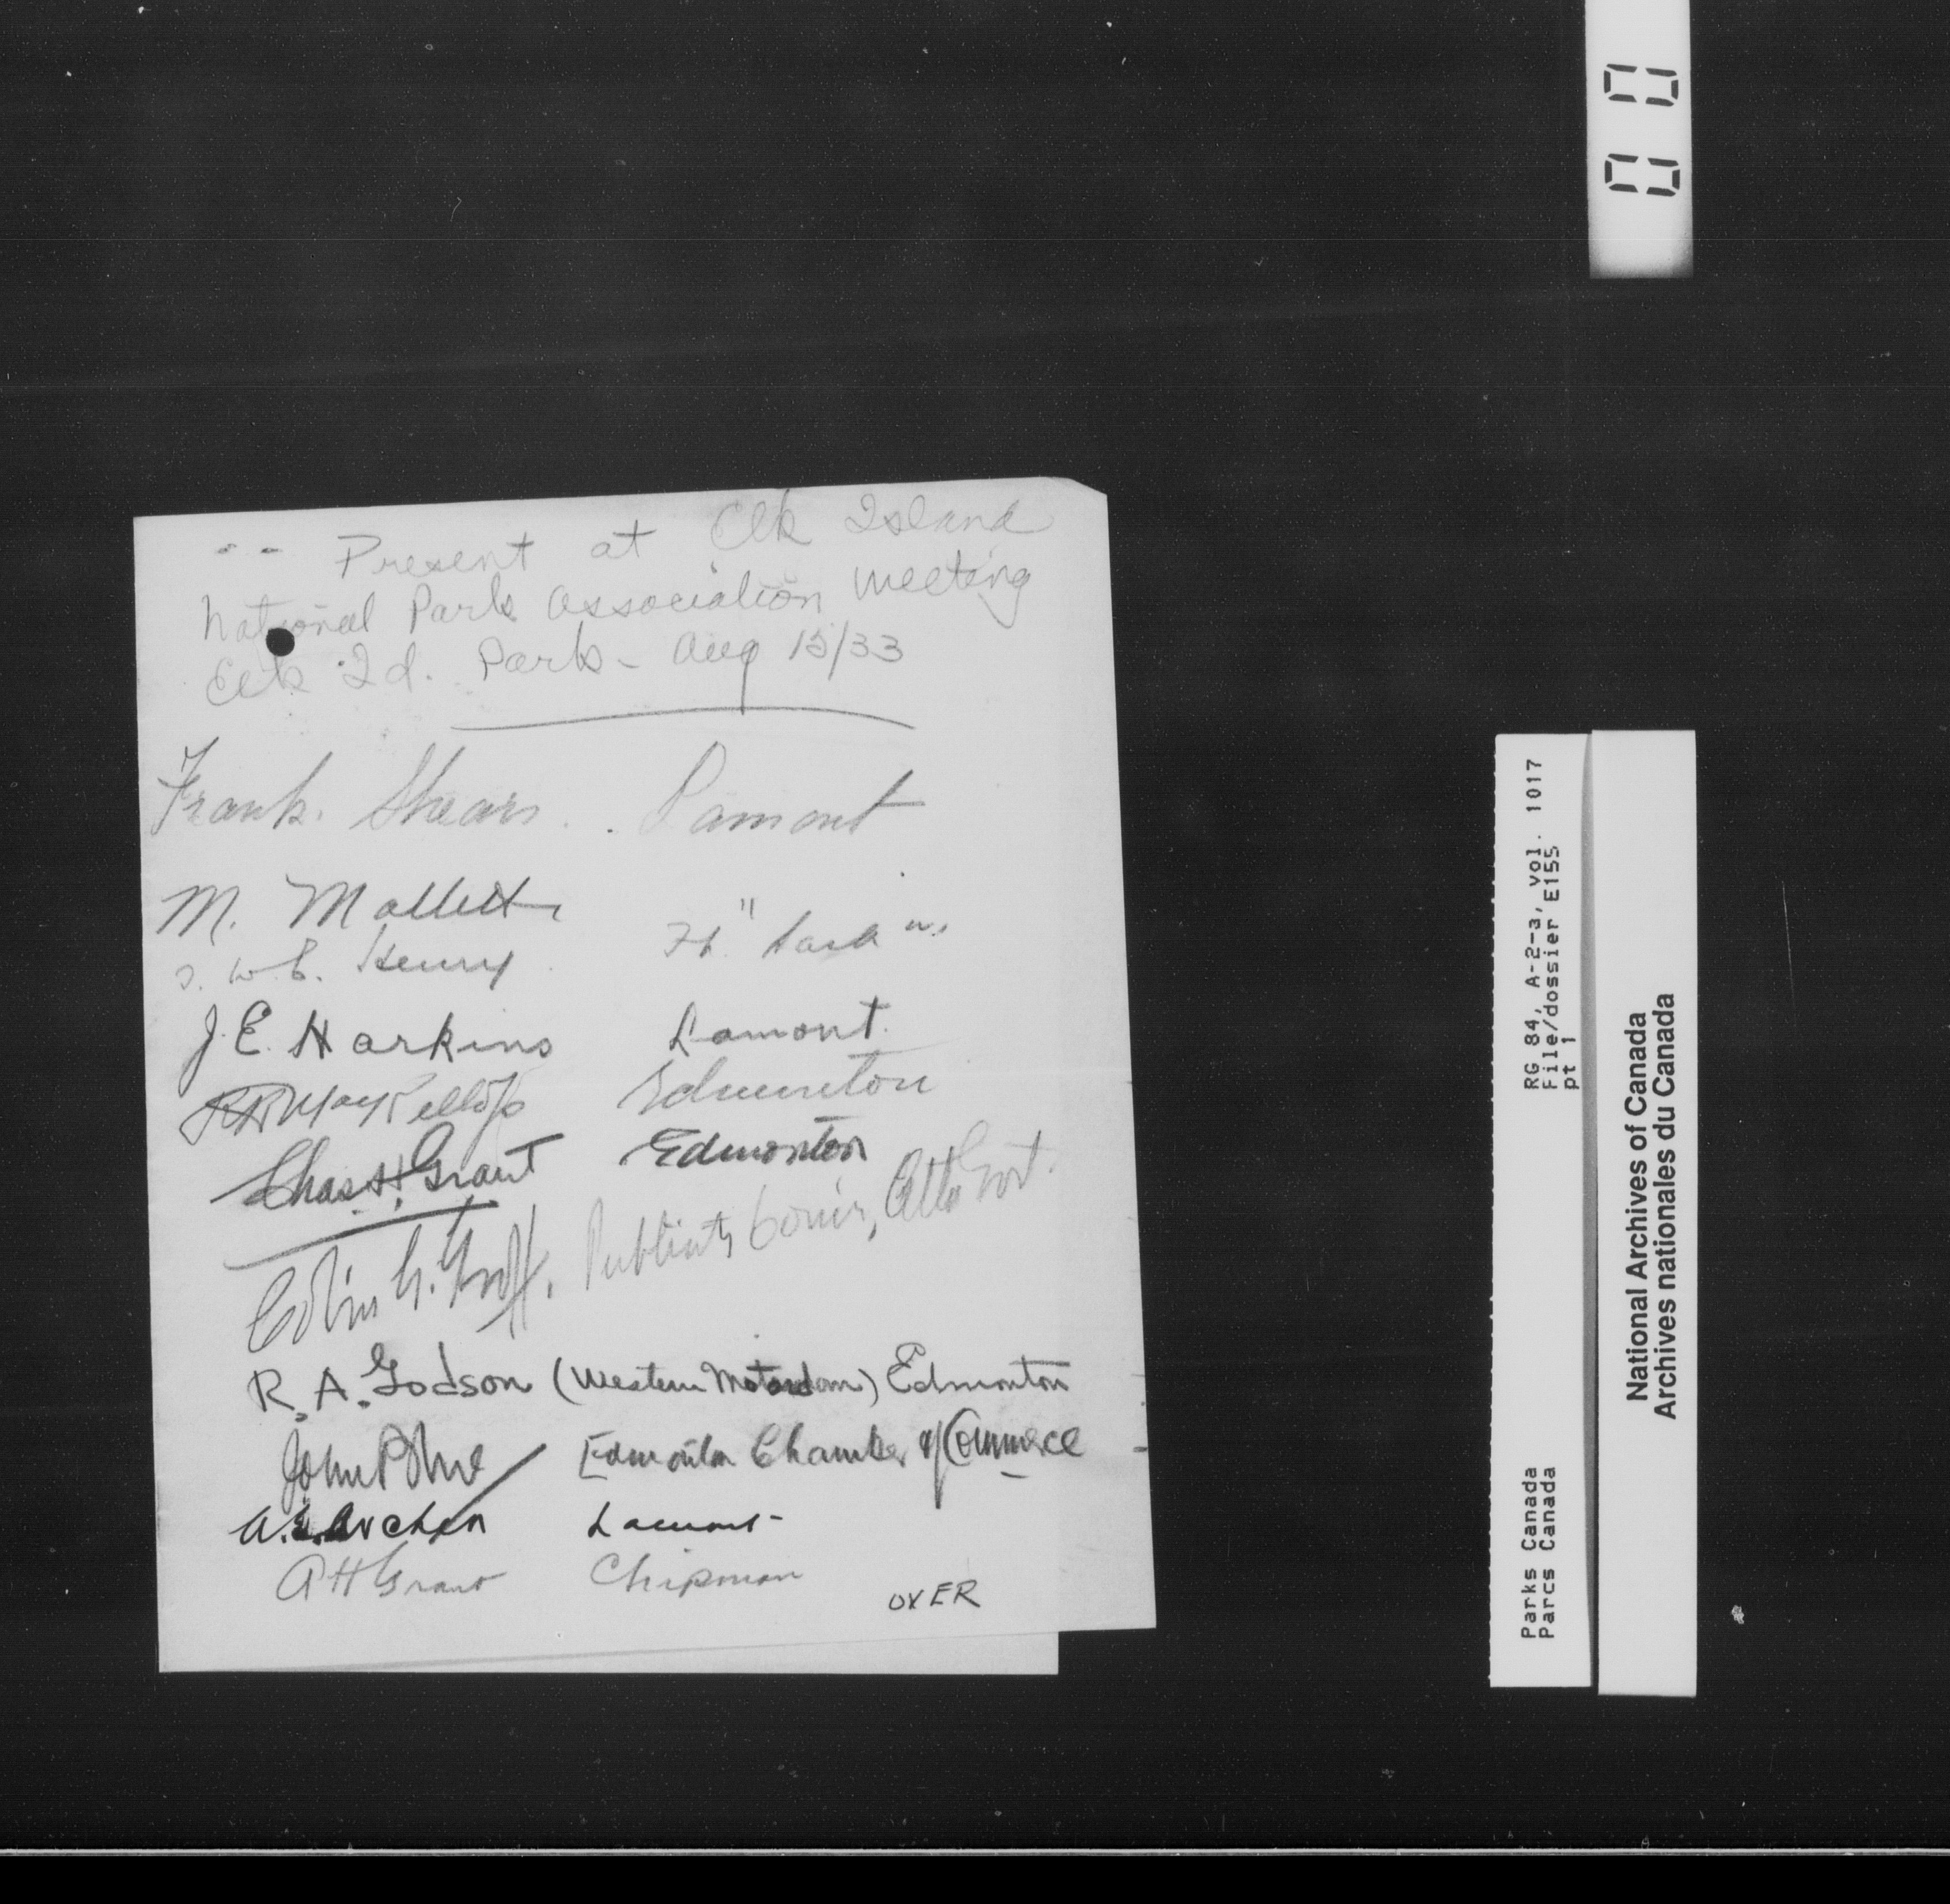 -- Present at Elk Island
National Park Association meeting
Elk Id. Park - Aug 15/33
Frank. Shears . . Lamont
M. Mallett "
W. Henry Ft. Sask
J. E. Harkins Lamont.
Edmonton
Chas H. Grant Edmonton
Colin G. Groff. Publicity Comr, Alta Govt.
R. A. Godson (Western Motordom) Edmonton
John Edmonton Chamber of Commerce
A. E. Archer Lamont
A H Grant Chipman
OVER
00
RG 84, A-2-a, vol. 1017
File/dossier E155
pt 1
Parks Canada
Parcs Canada
National Archives of Canada
Archives nationales du Canada